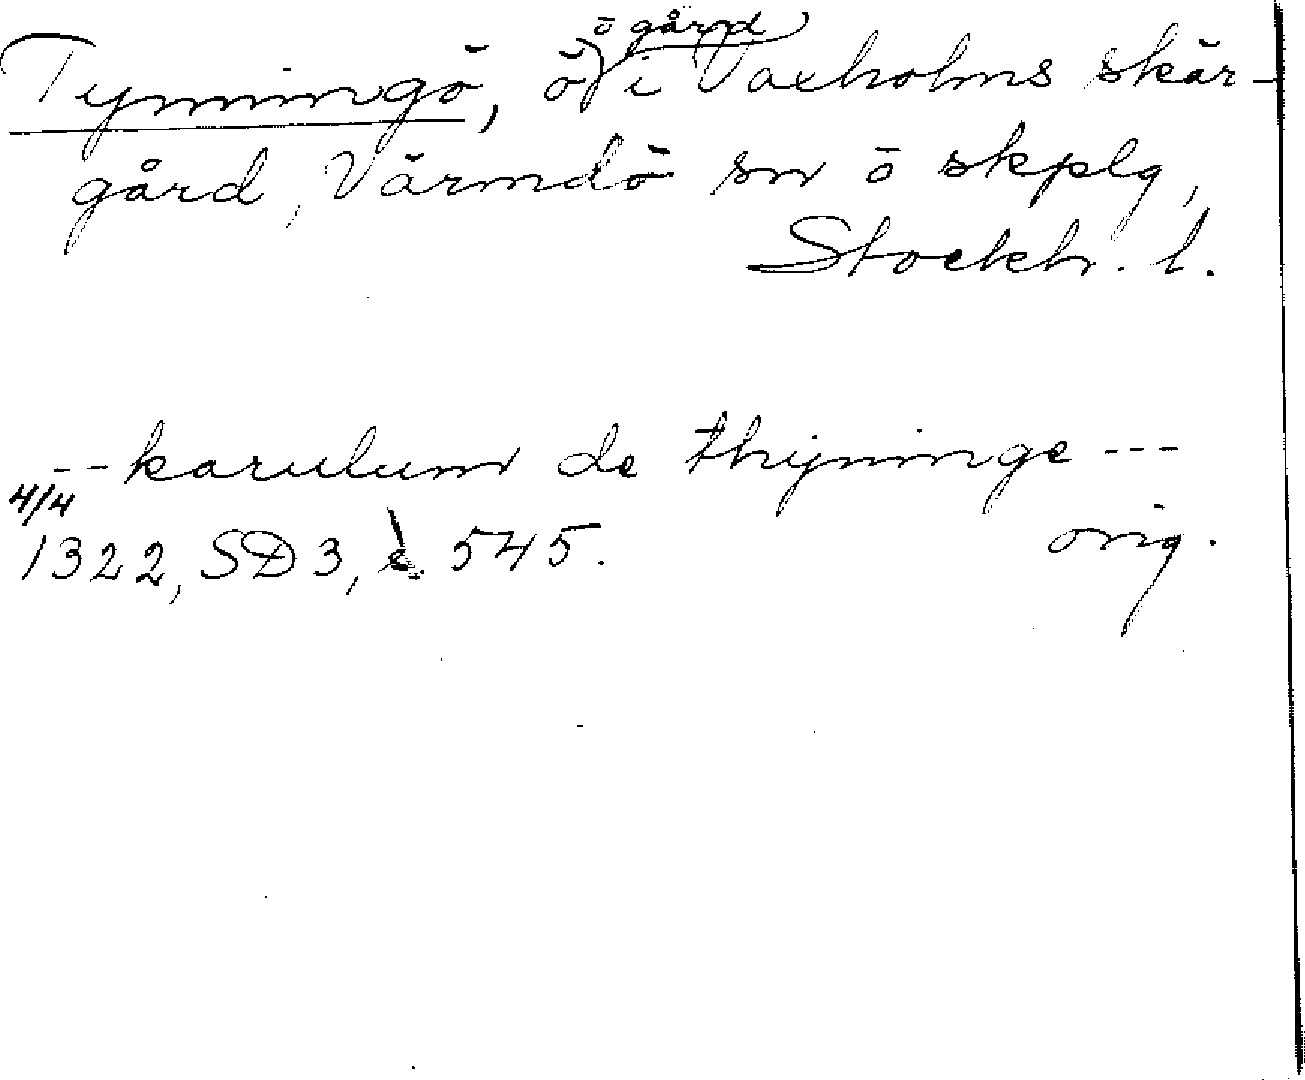 Tynningö, ö ō gård i Vaxholms skär-
gård, Värmdö sn ō skplg,
Stockh. l.
-- karulum de thyninge ---
4/4
1322, SD 3, s. 545. orig.